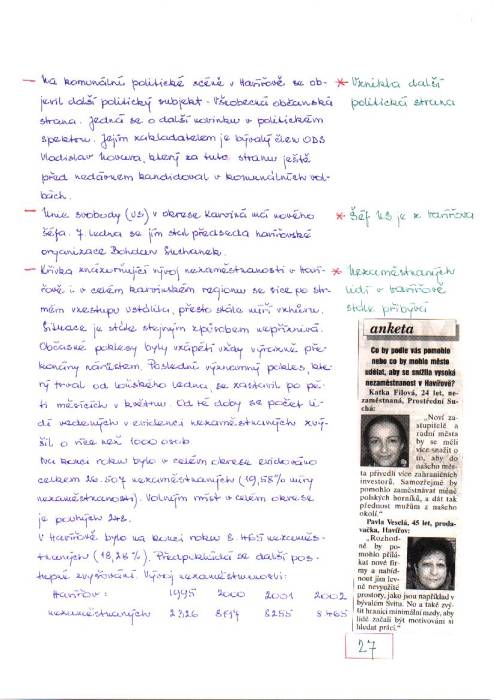 — Na komunální politické scéně v Havířově se ob-
jevil další politický subjekt - Všeobecná občanská
strana. Jedná se o další novinku v politickém
spektru. Jejím zakladatelem je bývalý člen ODS
Vladislav Kovura, který za tuto stranu ještě
před nedávnem kandidoval v komunálních vol-
bách.
— Unie svobody (US) v okrese Karviná má nového
šéfa. 7. ledna se jím stal předseda havířovské
organizace Bohdan Suchanek.
— Křivka znázorňující vývoj nezaměstnanosti v Haví-
řově i v celém karvinském regionu se sice po str-
mém vzestupu ustálila, přesto stále míří vzhůru.
Situace je stále stejným způsobem nepříznivá.
Občasné poklesy byly vzápětí vždy výrazně pře-
konány nárůstem. Poslední významný pokles, kte-
rý trval od loňského ledna, se zastavil po pě-
ti měsících v květnu. Od té doby se počet li-
dí vedených v evidenci nezaměstnaných zvý-
šil o více než 1000 osob
Na konci roku bylo v celém okrese evidováno
celkem 26.507 nezaměstnaných (19,58% míry
nezaměstnanosti). Volných míst v celém okrese
je pouhých 248.
V Havířově bylo na konci roku 8.465 nezaměst-
naných (18,28%). Předpokládá se další pos-
tupné zvyšování. Vývoj nezaměstnanosti:
Havířov: 1995 2000 2001 2002
nezaměstnaných 2326 8255 8465
* Vznikla další
politická strana
* Šéf US je z Havířova
* Nezaměstnaných
lidí v Havířově
stále přibývá
anketa
Co by podle vás pomohlo
nebo co by mohlo město
udělat, aby se snížila vysoká
nezaměstnanost v Havířově?
Katka Filová, 24 let, ne-
zaměstnaná, Prostřední Su-
chá:
„Noví za-
stupitelé a
radní města
by se měli
více snažit o
to, aby do
našeho měs-
ta přivedli více zahraničních
investorů. Samozřejmě by
pomohlo zaměstnávat méně
polských horníků, a dát tak
přednost mužům z našeho
okolí.“
Pavla Veselá, 45 let, proda-
vačka, Havířov:
„Rozhod-
ně by po-
mohlo přilá-
kat nové fir-
my a nabíd-
nout jim lev-
ně nevyužité
prostory, jako jsou například v
bývalém Svitu. No a také zvý-
šit hranici minimální mzdy, aby
lidé začali být motivováni si
hledat práci.“
27